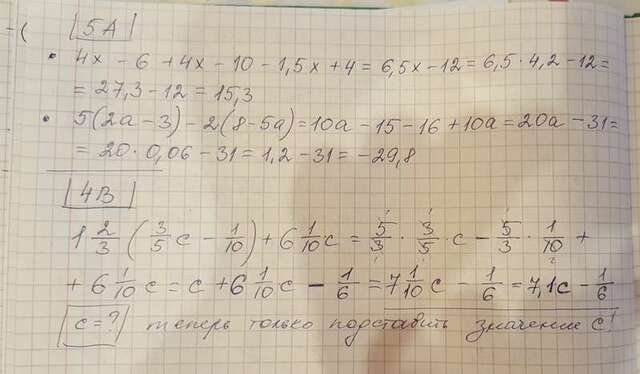 5А
• 4x - 6 + 4x - 10 - 1,5x + 4 = 6,5x - 12 = 6,5 · 4,2 - 12 =
= 27,3 - 12 = 15,3
• 5(2a - 3) - 2(8 - 5a) = 10a - 15 - 16 + 10a = 20a - 31 =
= 20 · 0,06 - 31 = 1,2 - 31 = -29,8
4В
1 2/3 (3/5 c - 1/10) + 6 1/10 c = 5/3 · 3/5 · c - 5/3 · 1/10 +
+ 6 1/10 c = c + 6 1/10 c - 1/6 = 7 1/10 c - 1/6 = 7,1c - 1/6
c = ? теперь только подставить значение c!